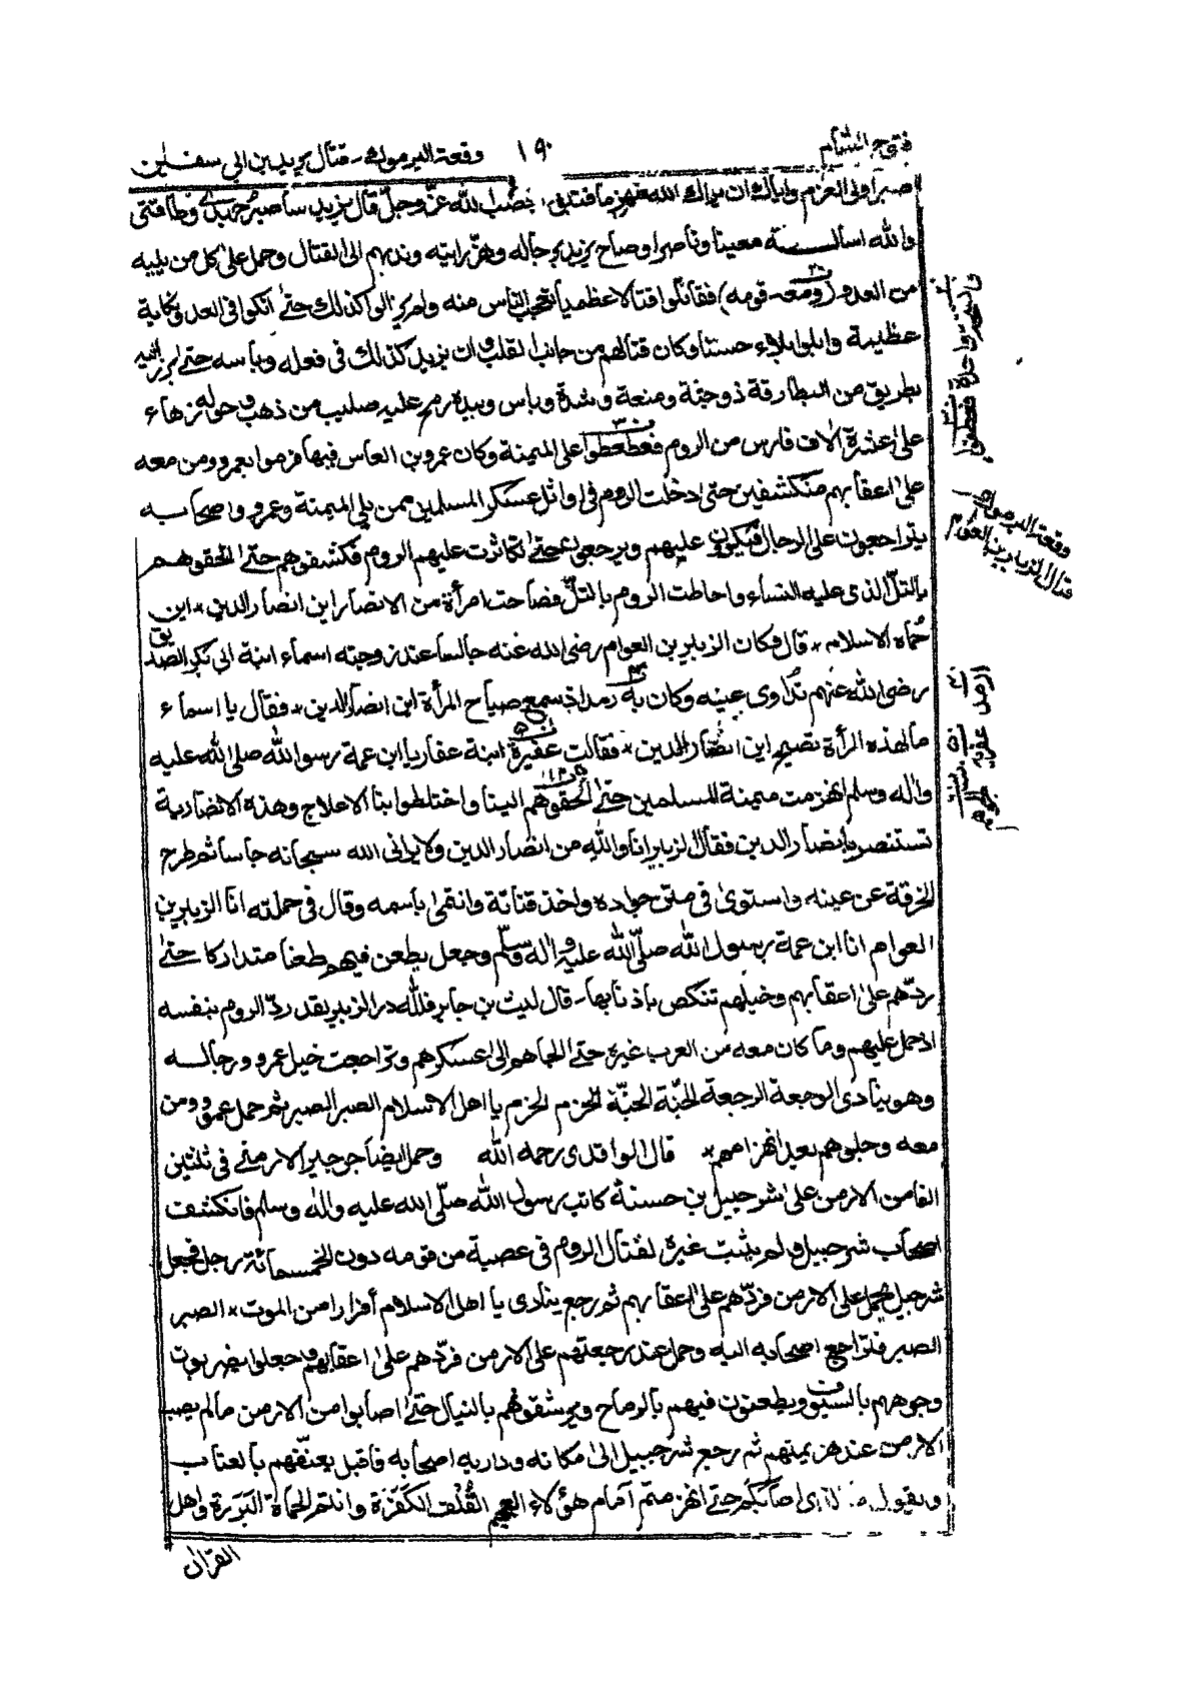 فتوح الشام
١٩٠
وقعة اليرموك - قتال يزيد بن ابي سفيان
صبر اولى العزم واياك ان يراك الله منهزما فتلقى بغضب الله عزّ وجلّ قال يزيد ساصبر جهدي وطاقتي
والله اسالـــة معينا وناصرا وصاح يزيد برجاله وهزّ رايته وندبهم الى القتال وحمل على كل من يليه
من العدو (ومعه قومه) فقاتلوا قتالا عظيما تعجب الناس منه ولم يزالوا كذلك حتى انكوا فى العدو نكاية
عظيمة وابلوا بلاء حسنا وكان قتالهم من جانب القلب وان يزيد كذلك فى فعله وباسه حتى ابرز اليه
بطريق من البطارقة ذو جثة ومنعة وشدة وباس وبيده رمح عليه صليب من ذهب وحوله زهاء
على عشرة الاف فارس من الروم فعطعطوا على الميمنة وكان عمرو بن العاص فيها فرموا بعمرو ومن معه
على اعقابهم منكشفين حتى دخلت الروم فى اوائل عسكر المسلمين ممن يلي الميمنة وعمرو واصحابه
يتراجعون على الرجال فيكرون عليهم ويرجعون حتى تكاثرت عليهم الروم فكشفوهم حتى الحقوهم
بالتلّ الذى عليه النساء واحاطت الروم بالتلّ فصاحت امرأة من الانصار اين انصار الدين * اين
حُماة الاسلام * قال فكان الزبير بن العوام رضى الله عنه جالسا عند زوجته اسماء ابنة ابى بكر الصديق
رضى الله عنهم تداوى عينه وكان به رمد اذ سمع صياح المرأة اين انصار الدين * فقال يا اسماء
ما لهذه المرأة تصيح اين انصار الدين * فقالت عفيرة ابنة عفار يا ابن عمة رسول الله صلى الله عليه
واله وسلم انهزمت ميمنة المسلمين حتى الحقوهم الينا واختلطوا بنا الاعلاج وهذه الانصارية
تستنصر بانصار الدين فقال الزبير انا والله من انصار الدين ولا يرانى الله سبحانه جالسا ثم طرح
الخرقة عن عينه واستوى فى متن جواده واخذ قناتة وانتمى باسمه وقال فى حملته انا الزبير بن
العوام انا ابن عمة رسول الله صلّى الله عليه واله وسلّم وجعل يطعن فيهم طعنا متداركا حتى
ردّهم على اعقابهم وخيلهم تنكص باذنابها - قال ليث بن جابر فلله در الزبير لقد ردّ الروم بنفسه
اذ حمل عليهم وما كان معه من العرب غيره حتى الجاهم الى عسكرهم وتراجعت خيل عمرو ورجالـــه
وهو ينادى الرجعة الرجعة الحبّة الحبّة الحزم الحزم يا اهل الاسلام الصبر الصبر ثم حمل عمرو ومن
معه وجلوهم بعد انهزامهم * قال الواقدى رحمه الله وحمل ايضا جرجير الارمني فى ثلثين
الفا من الارمن على شرحبيل بن حسنة كاتب رسول الله صلّى الله عليه واله وسلم فانكشف
اصحاب شرحبيل ولم يثبت غيره لقتال الروم فى عصبة من قومه دون الخمسمائة رجل فجعل
شرحبيل يحمل على الارمن فردّهم على اعقابهم ثم رجع ينادى يا اهل الاسلام أفرارا من الموت * الصبر
الصبر فتراجع اصحابه اليه وحمل عند رجعتهم على الارمن فردّهم على اعقابهم وجعلوا يضربون
وجوههم بالسيوف ويطعنون فيهم بالرماح ويرشقونهم بالنبال حتى اصابوا من الارمن ما لم يصب
الارمن عند هزيمتهم ثم رجع شرحبيل الى مكانه ودار به اصحابه فاقبل يعنّفهم بالعتاب
ويقول ما الذى اصابكم حتى انهزمتم أمام هؤلاء العجم القُلْف الكَفَرَة وانتم الحماة البَرَرة واهل
القرآن
وقعة اليرموك
قتال الزبير بن العوام